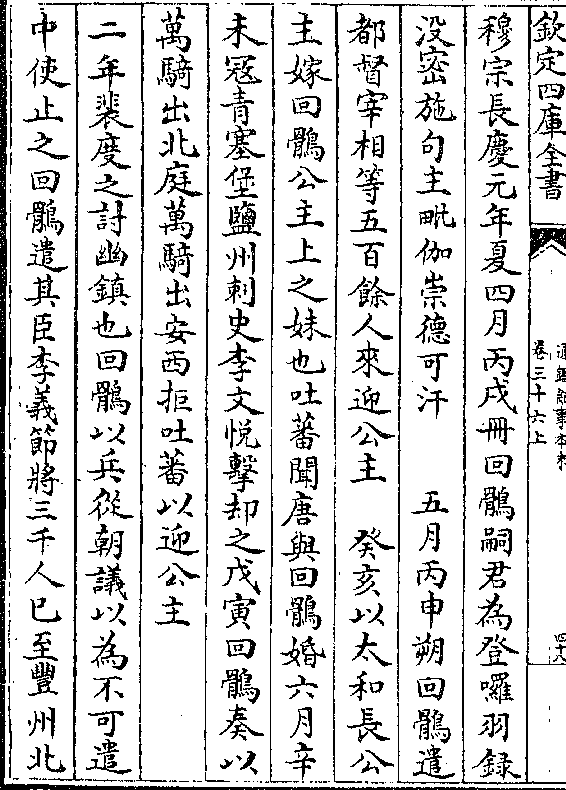 欽定四庫全書
通鑑紀事本末
卷三十六上
四十八
穆宗長慶元年夏四月丙戌冊回鶻嗣君為登囉羽録
沒密施句主毗伽崇德可汗　五月丙申朔回鶻遣
都督宰相等五百餘人來迎公主　癸亥以太和長公
主嫁回鶻公主上之妹也吐蕃聞唐與回鶻婚六月辛
未冦青塞堡鹽州刺史李文悅擊却之戊寅回鶻奏以
萬騎出北庭萬騎出安西拒吐蕃以迎公主
二年裴度之討幽鎮也回鶻以兵從朝議以為不可遣
中使止之回鶻遣其臣李義節將三千人已至豐州北